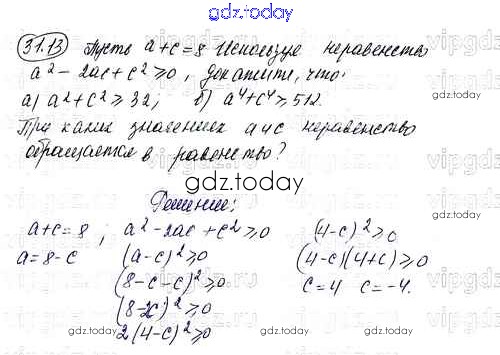 gdz.today
31.13 Пусть a+c=8 Используя неравенство
a² - 2ac + c² ≥ 0, докажите, что:
а) a² + c² ≥ 32; б) a⁴ + c⁴ ≥ 512.
При каких значениях a и c неравенство
обращается в равенство?
gdz.today
Решение:
a+c=8 ; a² - 2ac + c² ≥ 0 (4-c)² ≥ 0
a=8-c (a-c)² ≥ 0 (4-c)(4+c) ≥ 0
(8-c-c)² ≥ 0 c=4 c=-4.
(8-2c)² ≥ 0
2(4-c)² ≥ 0
gdz.today gdz.today gdz.today